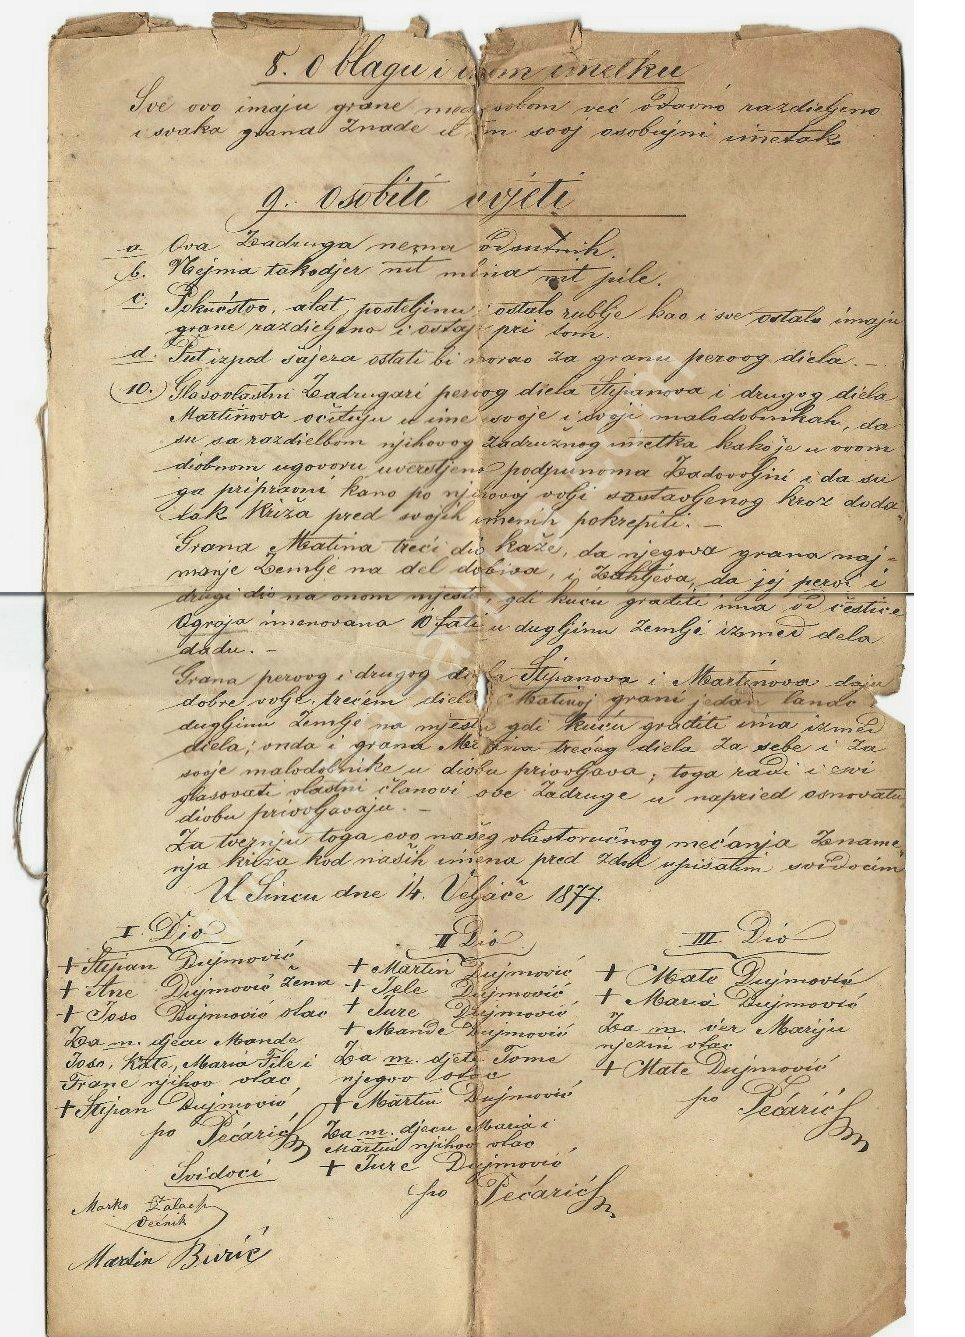 8. O blagu i inom imetku
Sve ovo imaju grane medj sobom već odavno razdieljeno
i svaka grana znade za svoj osobujni imetak
9. Osobiti uvjeti
a Ova Zadruga nema odsutnih.
b. Nejma takodjer nit mlina nit pile.
c. Pokućstvo, alat posteljinu i ostalo rublje kao i sve ostalo imaju
grane razdieljeno i ostaje pri tom.
d. Put izpod šajera ostati bi morao za granu pervog diela. -
10. Glasovlastni Zadrugari pervog diela Stipanova i drugog diela
Martinova očituju u ime svoje i svoji malodobnikah, da
su sa razdielbom njihovog zadružnog imetka kako je u ovom
diobnom ugovoru uversteno podpunoma zadovoljni i da su
ga pripravni kano po njihovoj volji sastavljenog kroz doda-
tak križa pred svojih imenih pokrepiti. -
Grana Matina treći dio kaže, da njegova grana naj-
manje zemlje na del dobiva, i zahtjeva, da jej pervi i
drugi dio na onom mjestu gdi kuću graditi ima od čestice
Ograja imenovana 10 fati u dugljinu zemlje izmed dela
dadu. -
Grana pervog i drugog diela Stipanova i Martinova daju
dobre volje trećem dielu Matinoj grani jedan lanac
dugljinu zemlje na mjestu gdi kuću graditi ima izmed
diela; onda i grana Matina trećeg diela za sebe i za
svoje malodobnike u diobu privoljava; toga radi i svi
glasovati vlastni članovi ove Zadruge u napried osnovatu
diobu privoljavaju. -
Za tvernju toga evo našeg vlastoručnog mećanja zname-
nja križa kod naših imena pred zdol upisatim svidocim
U Sincu dne 14. Veljače 1877.
I. Dio
+ Stipan Dujmović
+ Ane Dujmović žena
+ Joso Dujmović otac
Za m. djecu Mande
Joso, Kate, Maria File i
Frane njihov otac
+ Stipan Dujmović
po Pećarić
Svidoci
Marko Zalac
Većnik
Martin Burić
II Dio
+ Martin Dujmović
+ Jele Dujmović
+ Jure Dujmović
+ Mande Dujmović
Za m. djete Tome
njegov otac
+ Martin Dujmović
Za m. djecu Maria i
Martin njihov otac
+ Jure Dujmović
po Pećarić
III Dio
+ Mate Dujmović
+ Maria Dujmović
Za m. ćer Mariju
njezin otac
+ Mate Dujmović
po Pećarić